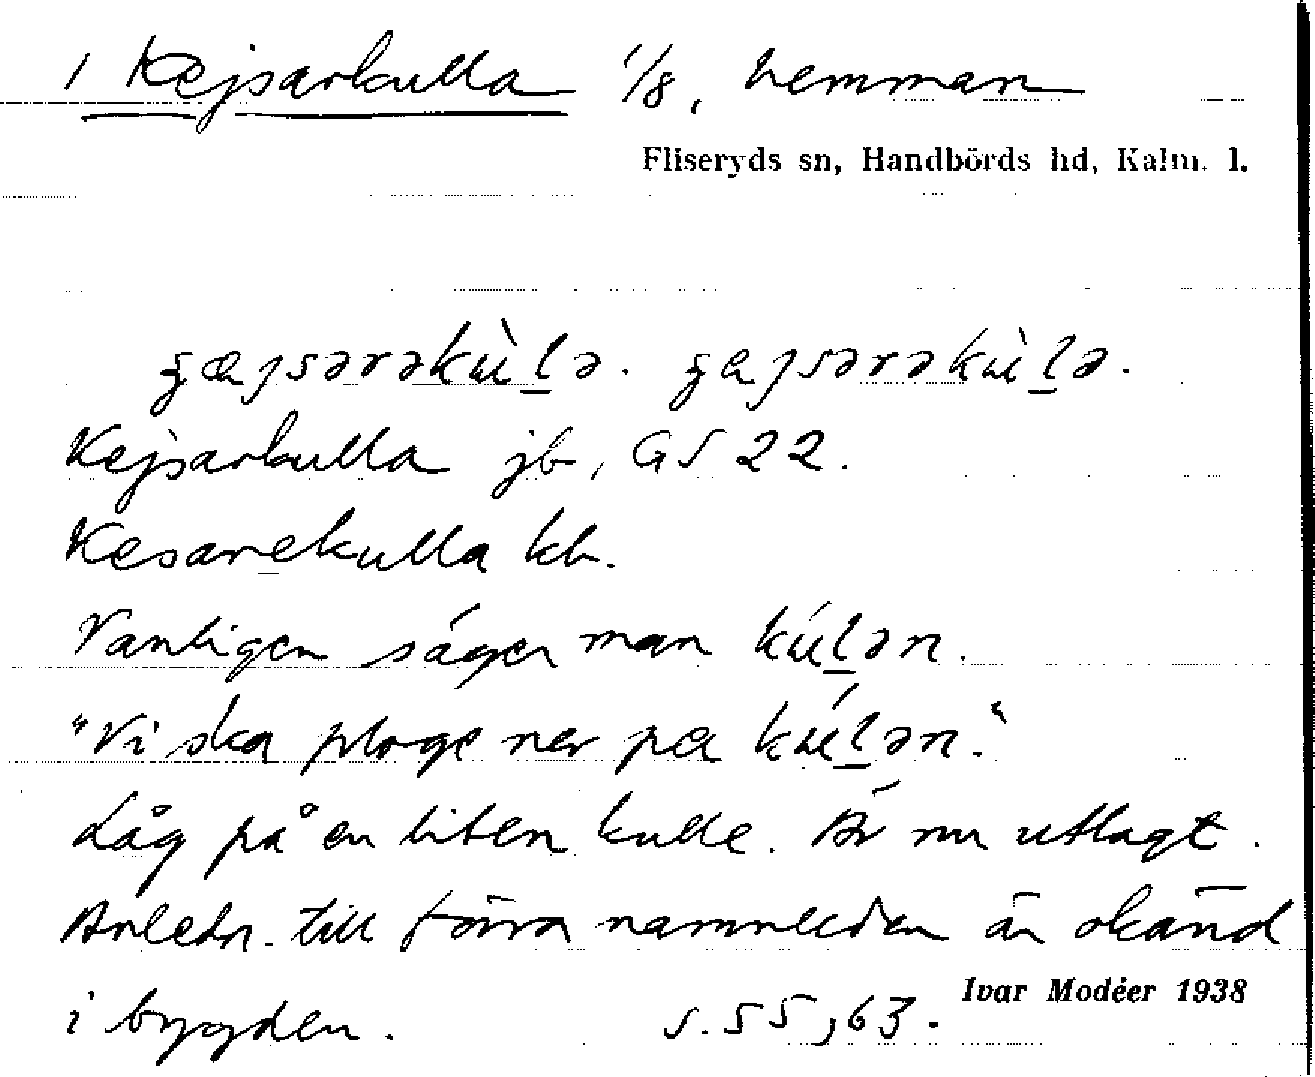 1 Kejsarkulla 1/8, hemman
Fliseryds sn, Handbörds hd, Kalm. l.
ʒæȷsərəkùl̲ə. ʒaȷsərəkùl̲ə.
Kejsarkulla jb, GS 22.
Kesarekulla kb.
Vanligen säger man kúl̲ən.
"Vi ska ploge ner pa kúl̲ən."
Låg på en liten kulle. Är nu utlagt.
Anledn. till förra namnleden är okänd
i bygden. s. 55, 63.
Ivar Modéer 1938